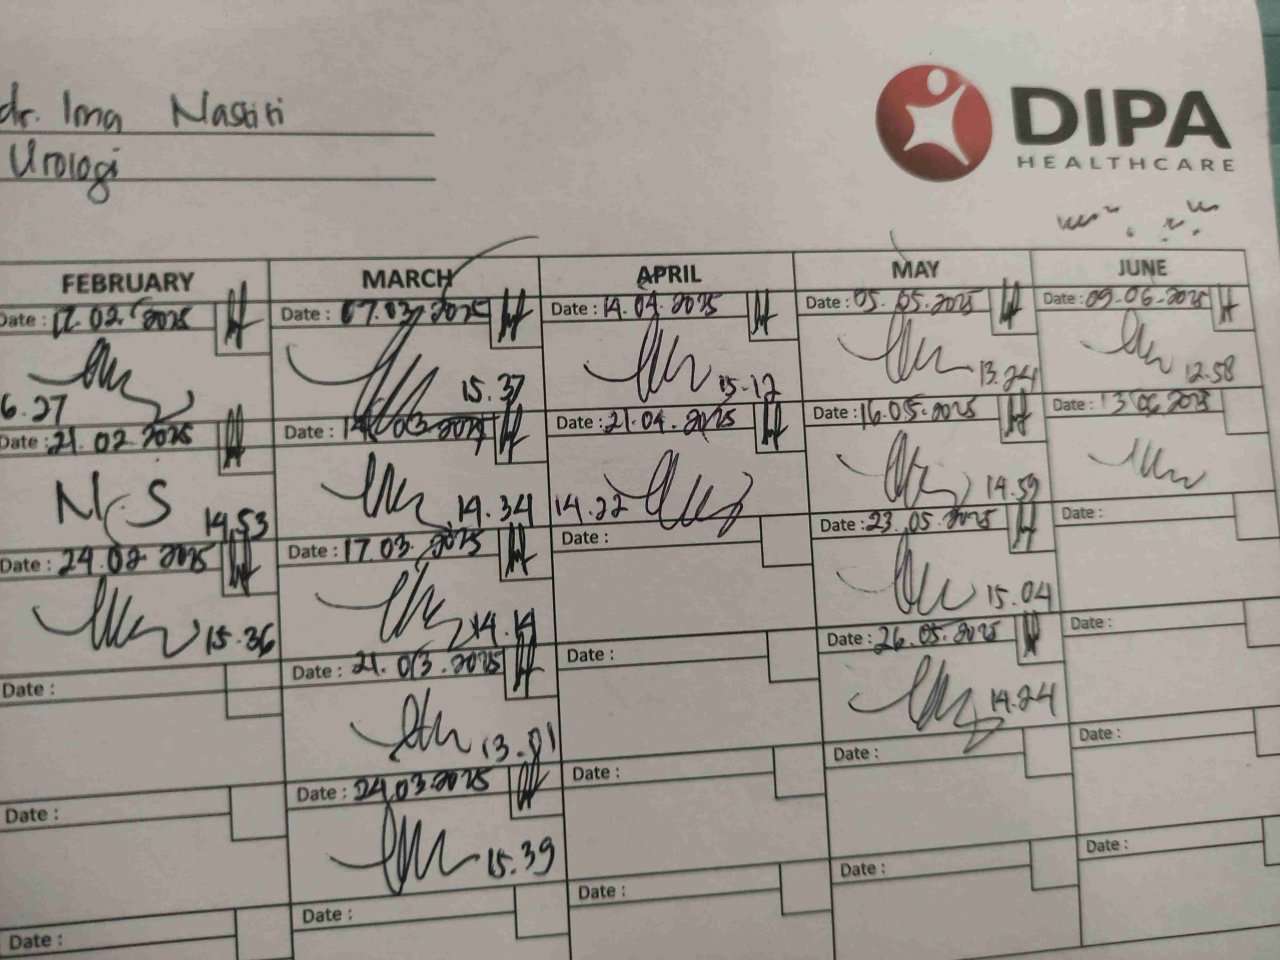 dr. Ima Nastiti
Urologi
DIPA
HEALTHCARE
FEBRUARY MARCH APRIL MAY JUNE
Date : 17.02.2025 Date : 07.03.2025 Date : 14.04.2025 Date : 05.05.2025 Date : 09.06.2025
6.27 15.37 15.12 13.24 12.58
Date : 21.02.2025 Date : 14.03.2025 Date : 21.04.2025 Date : 16.05.2025 Date : 13.06.2025
N.S 14.53 14.34 14.22 14.59
Date : 24.02.2025 Date : 17.03.2025 Date : Date : 23.05.2025 Date :
15.36 14.14 15.04
Date : Date : 21.03.2025 Date : Date : 26.05.2025 Date :
13.01 14.24
Date : Date : 24.03.2025 Date : Date : Date :
15.39
Date : Date : Date : Date : Date :